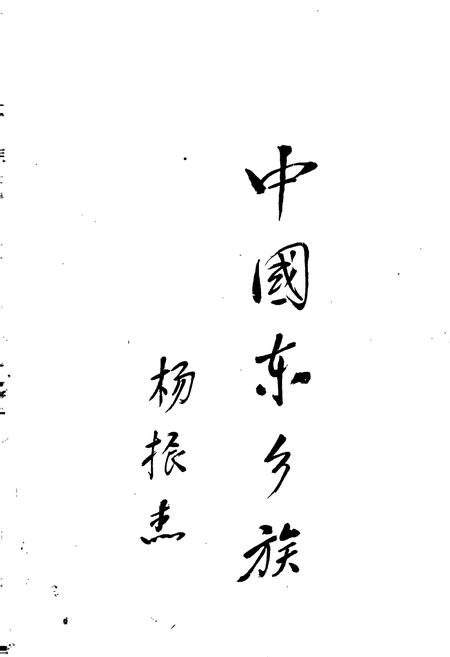 中國东乡族
杨振杰